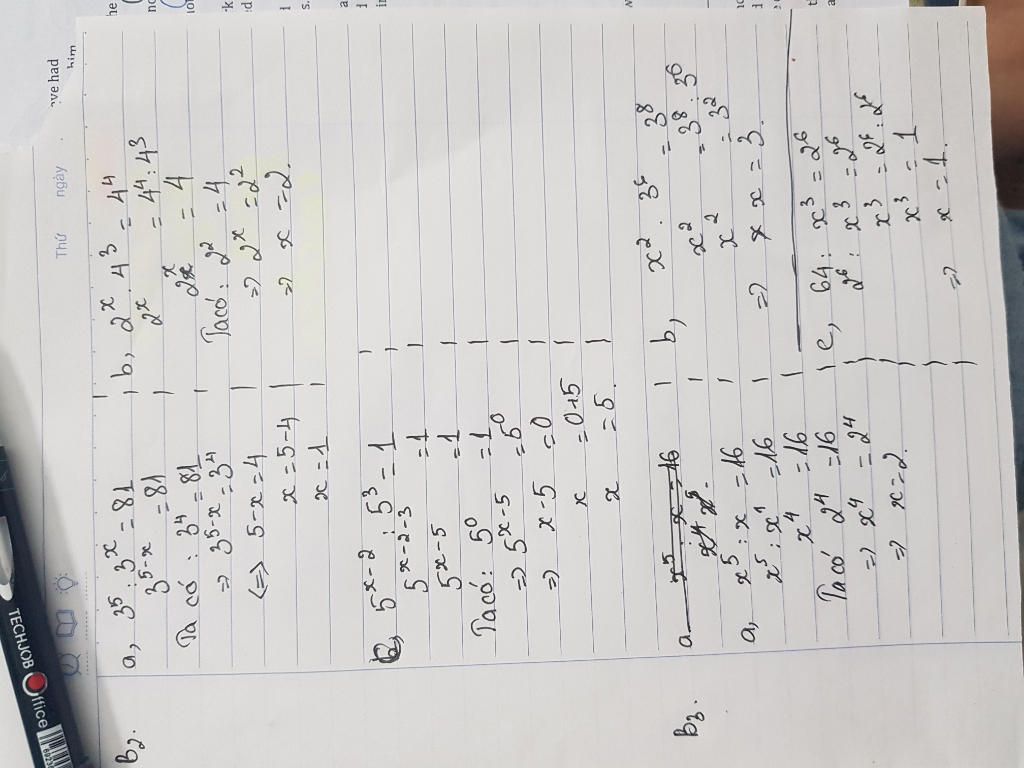 Thứ ngày
B2.
a, 3⁵ : 3ˣ = 81
3⁵⁻ˣ = 81
Ta có : 3⁴ = 81
=> 3⁵⁻ˣ = 3⁴
(=> 5-x = 4
x = 5-4
x = 1
b, 2ˣ . 4³ = 4⁴
2ˣ = 4⁴ : 4³
2ˣ = 4
Ta có : 2² = 4
=> 2ˣ = 2²
=> x = 2.
c, 5ˣ⁻² : 5³ = 1
5ˣ⁻²⁻³ = 1
5ˣ⁻⁵ = 1
Ta có : 5⁰ = 1
=> 5ˣ⁻⁵ = 5⁰
=> x-5 = 0
x = 0+5
x = 5.
B3.
a x⁵ : x = 16
a, x⁵ : x = 16
x⁵ : x¹ = 16
x⁴ = 16
Ta có 2⁴ = 16
=> x⁴ = 2⁴
=> x = 2.
b, x² . 3⁶ = 3⁸
x² = 3⁸ : 3⁶
x² = 3²
=> x = 3.
c, 64 : x³ = 2⁶
2⁶ : x³ = 2⁶
x³ = 2⁶ : 2⁶
x³ = 1
=> x = 1.
TECHJOB
Office
ve had
him